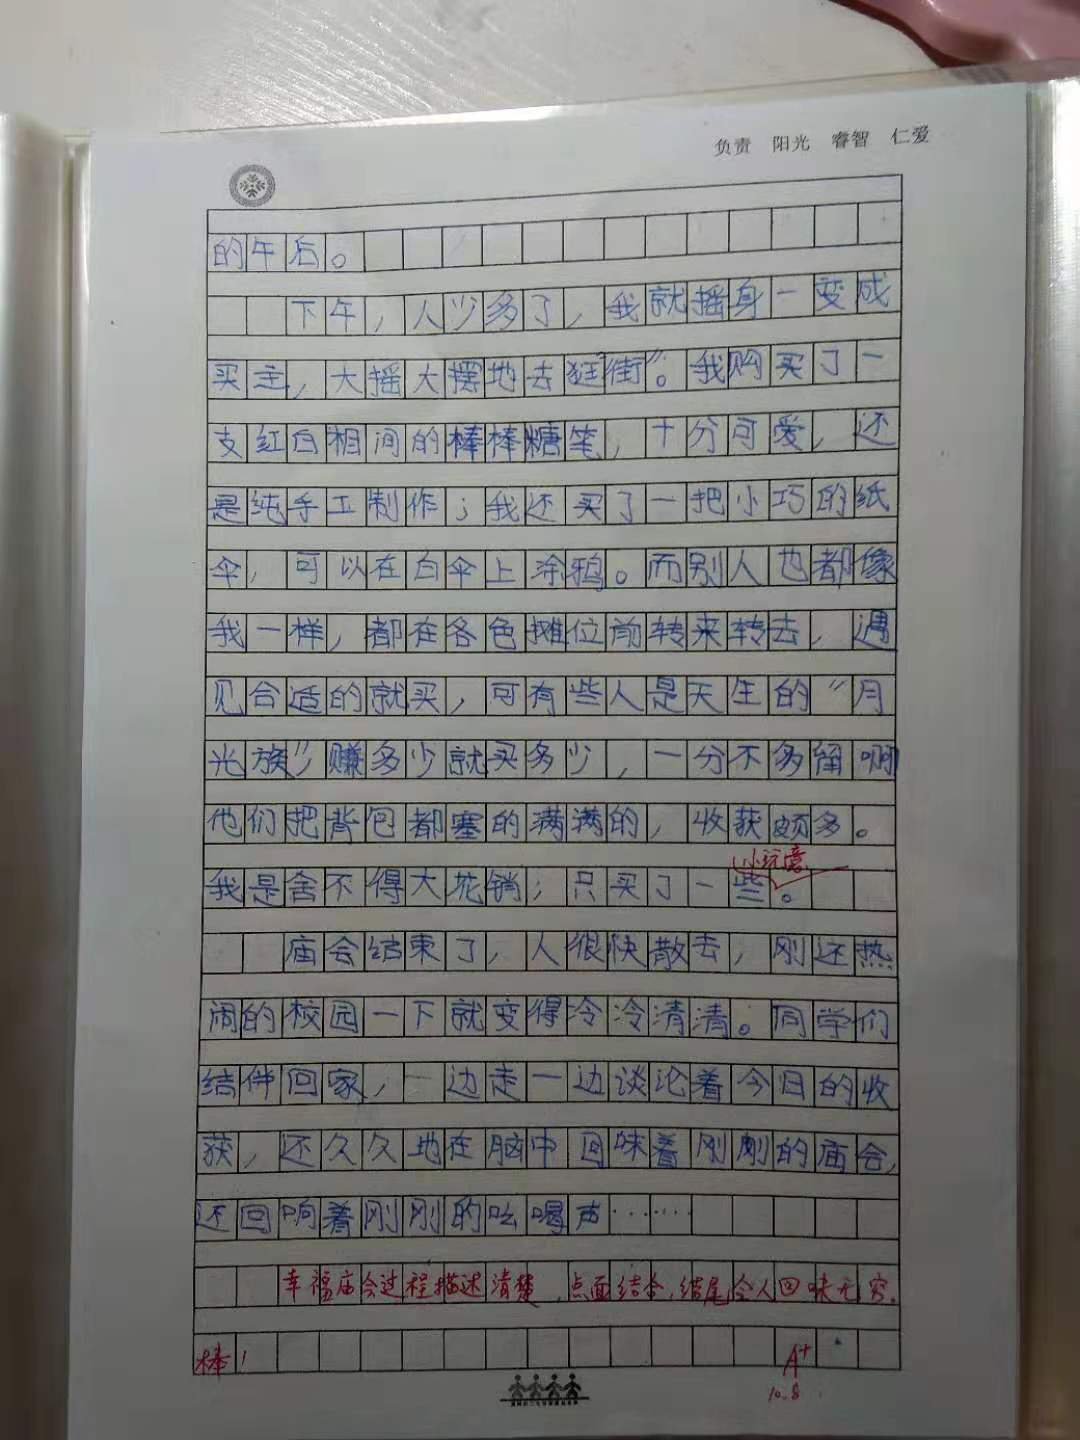 负责 阳光 睿智 仁爱
的午后。
下午，人少多了，我就摇身一变成
买主，大摇大摆地去逛“街”。我购买了一
支红白相间的棒棒糖笔，十分可爱，还
是纯手工制作；我还买了一把小巧的纸
伞，可以在白伞上涂鸦。而别人也都像
我一样，都在各色摊位前转来转去，遇
见合适的就买，可有些人是天生的“月
光族”赚多少就买多少，一分不多留啊
他们把背包都塞的满满的，收获颇多。
小玩意
我是舍不得大花销；只买了一些。
庙会结束了，人很快散去，刚还热
闹的校园一下就变得冷冷清清。同学们
结伴回家，一边走一边谈论着今日的收
获，还久久地在脑中回味着刚刚的庙会，
还回响着刚刚的吆喝声……
幸福庙会过程描述清楚，点面结合，结尾令人回味无穷。
棒！ A+
10.8